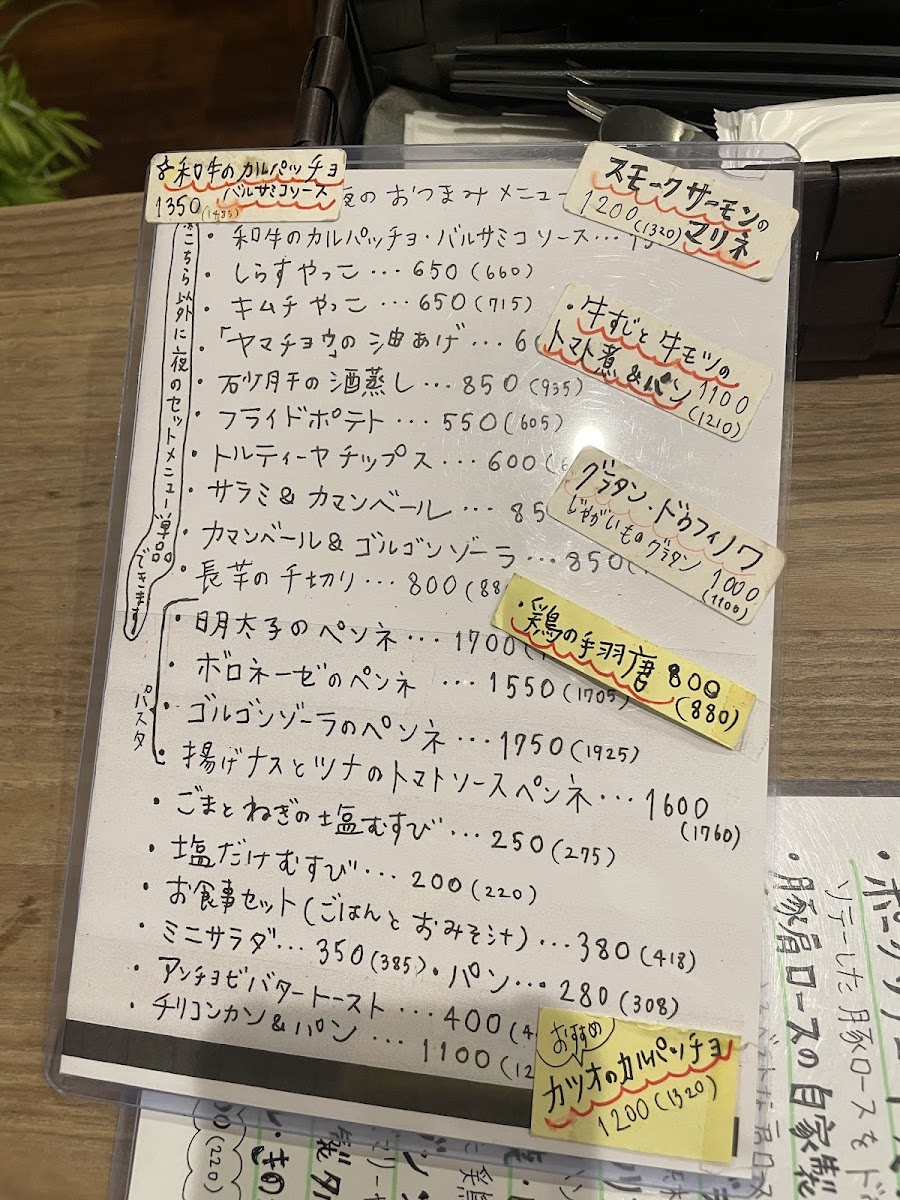 ☆和牛のカルパッチョ
バルサミコソース
1350(1485)
夜のおつまみメニュー
スモークサーモンの
マリネ
1200(1320)
・和牛のカルパッチョ・バルサミコソース…
・しらすやっこ…650(660)
・キムチやっこ…650(715)
・「ヤマチョウ」の油あげ…
・牛すじと牛モツの
トマト煮&パン 1100
(1210)
・砂肝の酒蒸し…850(935)
・フライドポテト…550(605)
・トルティーヤチップス…600
・グラタン・ドゥフィノワ
じゃがいものグラタン 1000
(1100)
・サラミ&カマンベール…85
・カマンベール&ゴルゴンゾーラ…850
・長芋の千切り…800(88
・鶏の手羽唐 800
(880)
こちら以外に夜のセットメニュー単品できます
パスタ
・明太子のペンネ…1700
・ボロネーゼのペンネ…1550(1705)
・ゴルゴンゾーラのペンネ…1750(1925)
・揚げナスとツナのトマトソースペンネ…1600
(1760)
・ごまとねぎの塩むすび…250(275)
・塩だけむすび…200(220)
・お食事セット(ごはんとおみそ汁)…380(418)
・ミニサラダ…350(385)・パン…280(308)
・アンチョビバタートースト…400(4
・チリコンカン&パン…1100(12
おすすめ
カツオのカルパッチョ
1200(1320)
ソテーした豚ロースを
・豚肩ロースの自家製
(220)